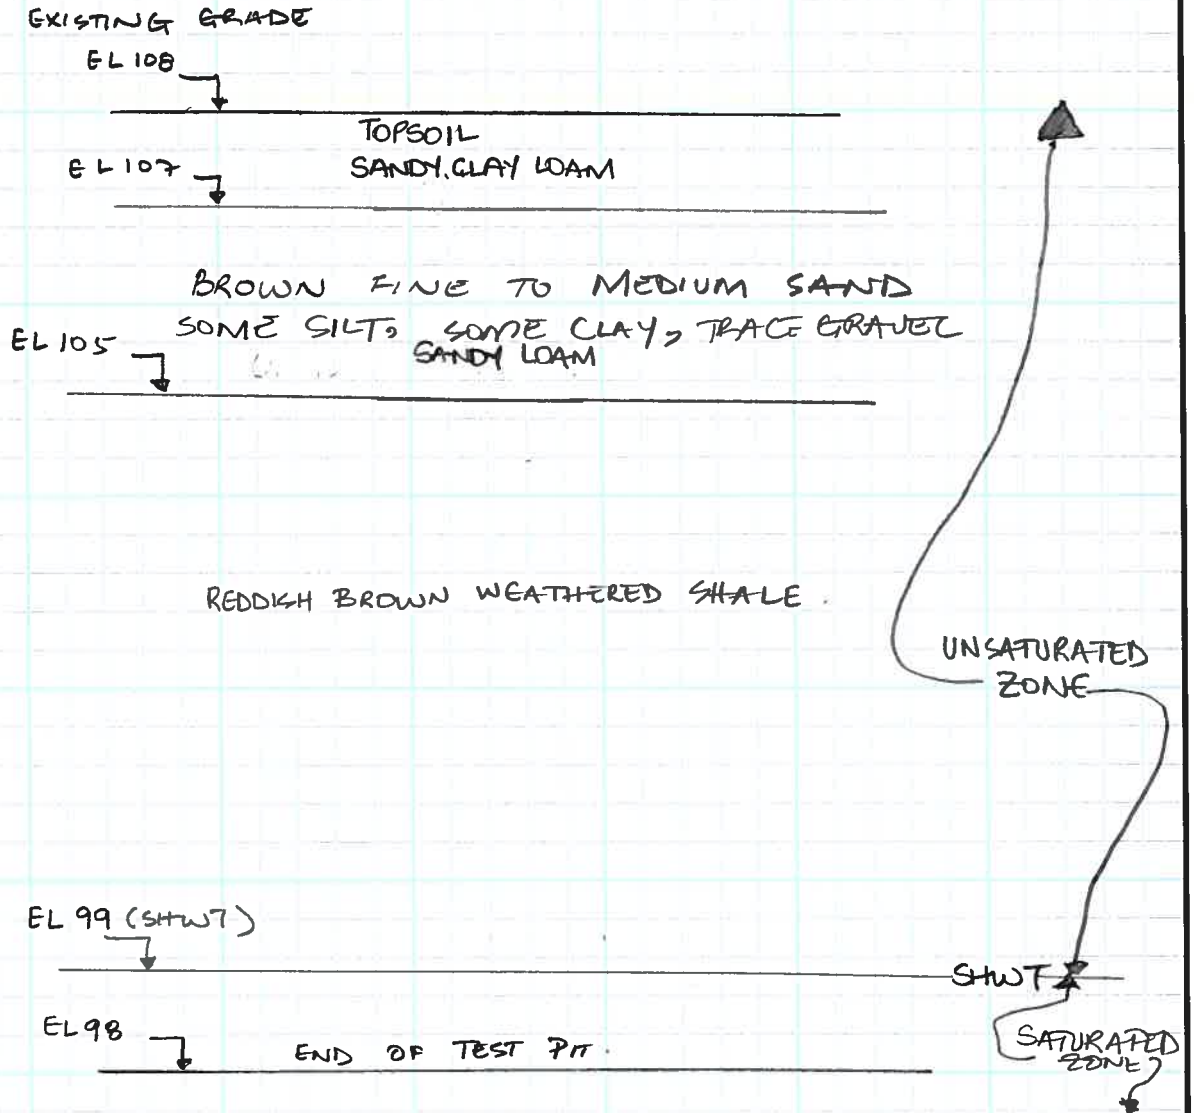 EXISTING GRADE
EL 108
TOPSOIL
EL 107
SANDY CLAY LOAM
BROWN FINE TO MEDIUM SAND
SOME SILT, SOME CLAY, TRACE GRAVEL
EL 105
SANDY LOAM
REDDISH BROWN WEATHERED SHALE.
UNSATURATED
ZONE
EL 99 (SHWT)
SHWT
EL 98
END OF TEST PIT.
SATURATED
ZONE